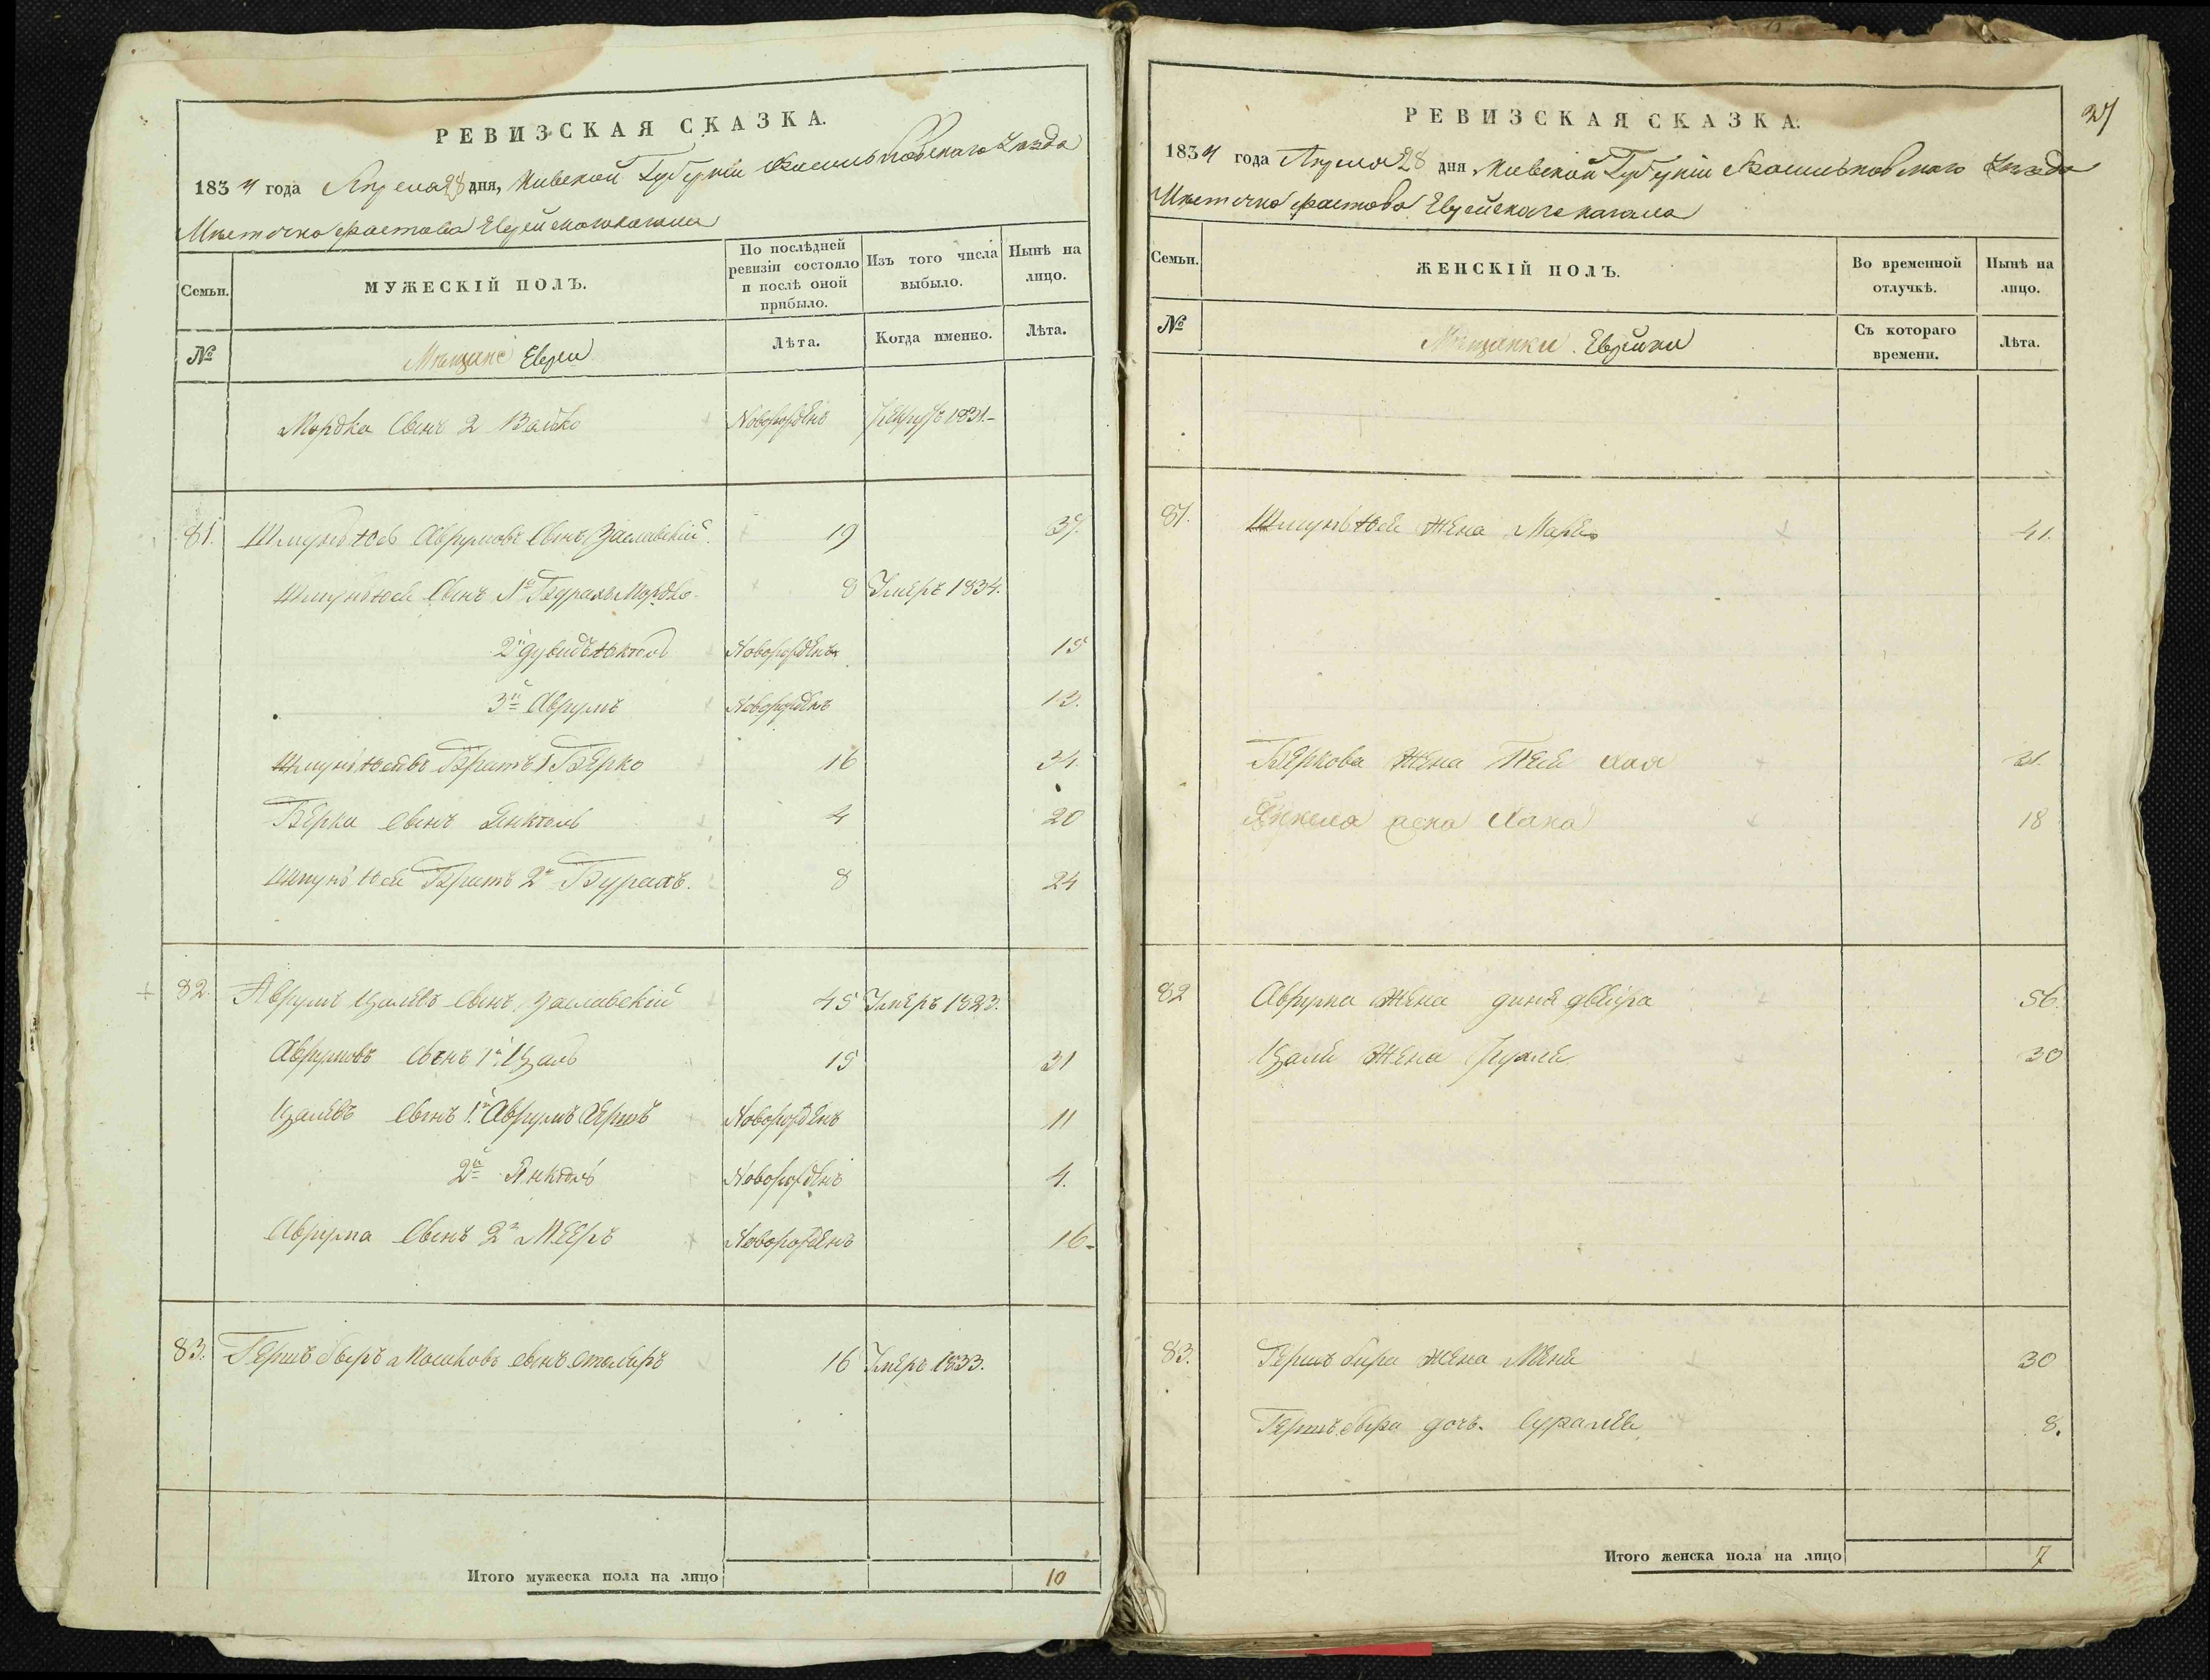 РЕВИЗСКАЯ СКАЗКА.
1834 года Апреля 28 дня, Киевской Губернии Васильковского Уезда
Местечка Фастова Еврейского кагала
Семьи.
МУЖЕСКІЙ ПОЛЪ.
По послѣдней ревизіи состояло и послѣ оной прибыло.
Изъ того числа выбыло.
Нынѣ на лицо.
№
Мещане Евреи
Лѣта.
Когда именно.
Лѣта.
Мордка Сынъ 2 Волько Новорожденъ 1831.
81. Шмунь Юсь Аврумовъ Сынъ Заславскій. 19 37.
Шмунь Юся Сынъ 1й Бурахъ Мордко 8 Умеръ 1834.
2й Дувидъ Янкель Новорожденъ 15
3й Аврумъ Новорожденъ 13.
Шмунь Юсевъ Братъ 1 Берко 16 34.
Берки Сынъ Янкель 4 20
Шмунь Юся Братъ 2й Бурахъ. 8 24
82. Аврумъ Цалевъ Сынъ Заславскій 45 Умеръ 1823.
Аврумовъ Сынъ 1й Цаль 15 31
Цалевъ Сынъ 1й Аврумъ Гершъ Новорожденъ 11
2й Янкель Новорожденъ 4.
Аврума Сынъ 2й Мееръ Новорожденъ 16
83. Гершъ Сыръ Мошковъ Сынъ Столяръ 16 Умеръ 1833.
Итого мужеска пола на лицо 10
27
РЕВИЗСКАЯ СКАЗКА.
1834 года Апреля 28 дня, Киевской Губернии Васильковского Уезда
Местечка Фастова Еврейского кагала
Семьи.
ЖЕНСКІЙ ПОЛЪ.
Во временной отлучкѣ.
Нынѣ на лицо.
№
Мещанки Еврейки
Съ котораго времени.
Лѣта.
81. Шмунь Юся Жена Марья 41.
Беркова Жена Хая 31.
Янкеля жена Хана 18
82 Аврума Жена Диня Двейра 56.
Цаля Жена Рухля 30
83. Гершъ Сыра Жена Меня 30
Гершъ Сыра дочь Сура Леа 8.
Итого женска пола на лицо 7